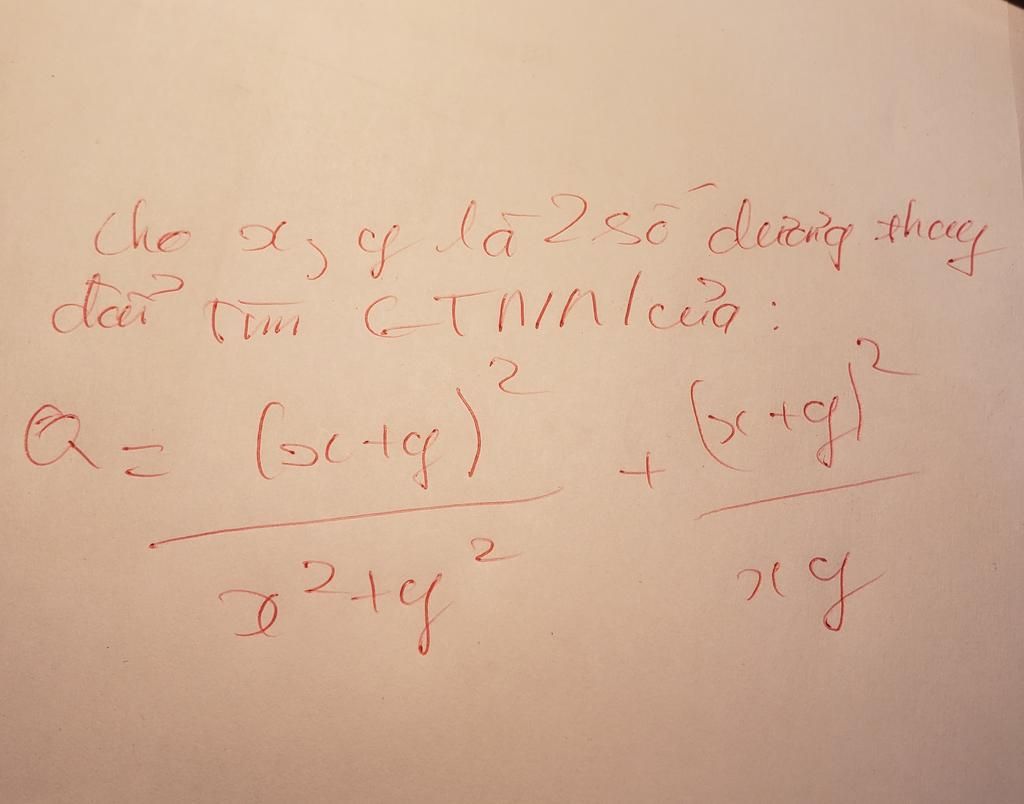 Cho x, y là 2 số dương thay
đổi Tìm GTNN của:
Q = (x+y)² / (x²+y²) + (x+y)² / xy